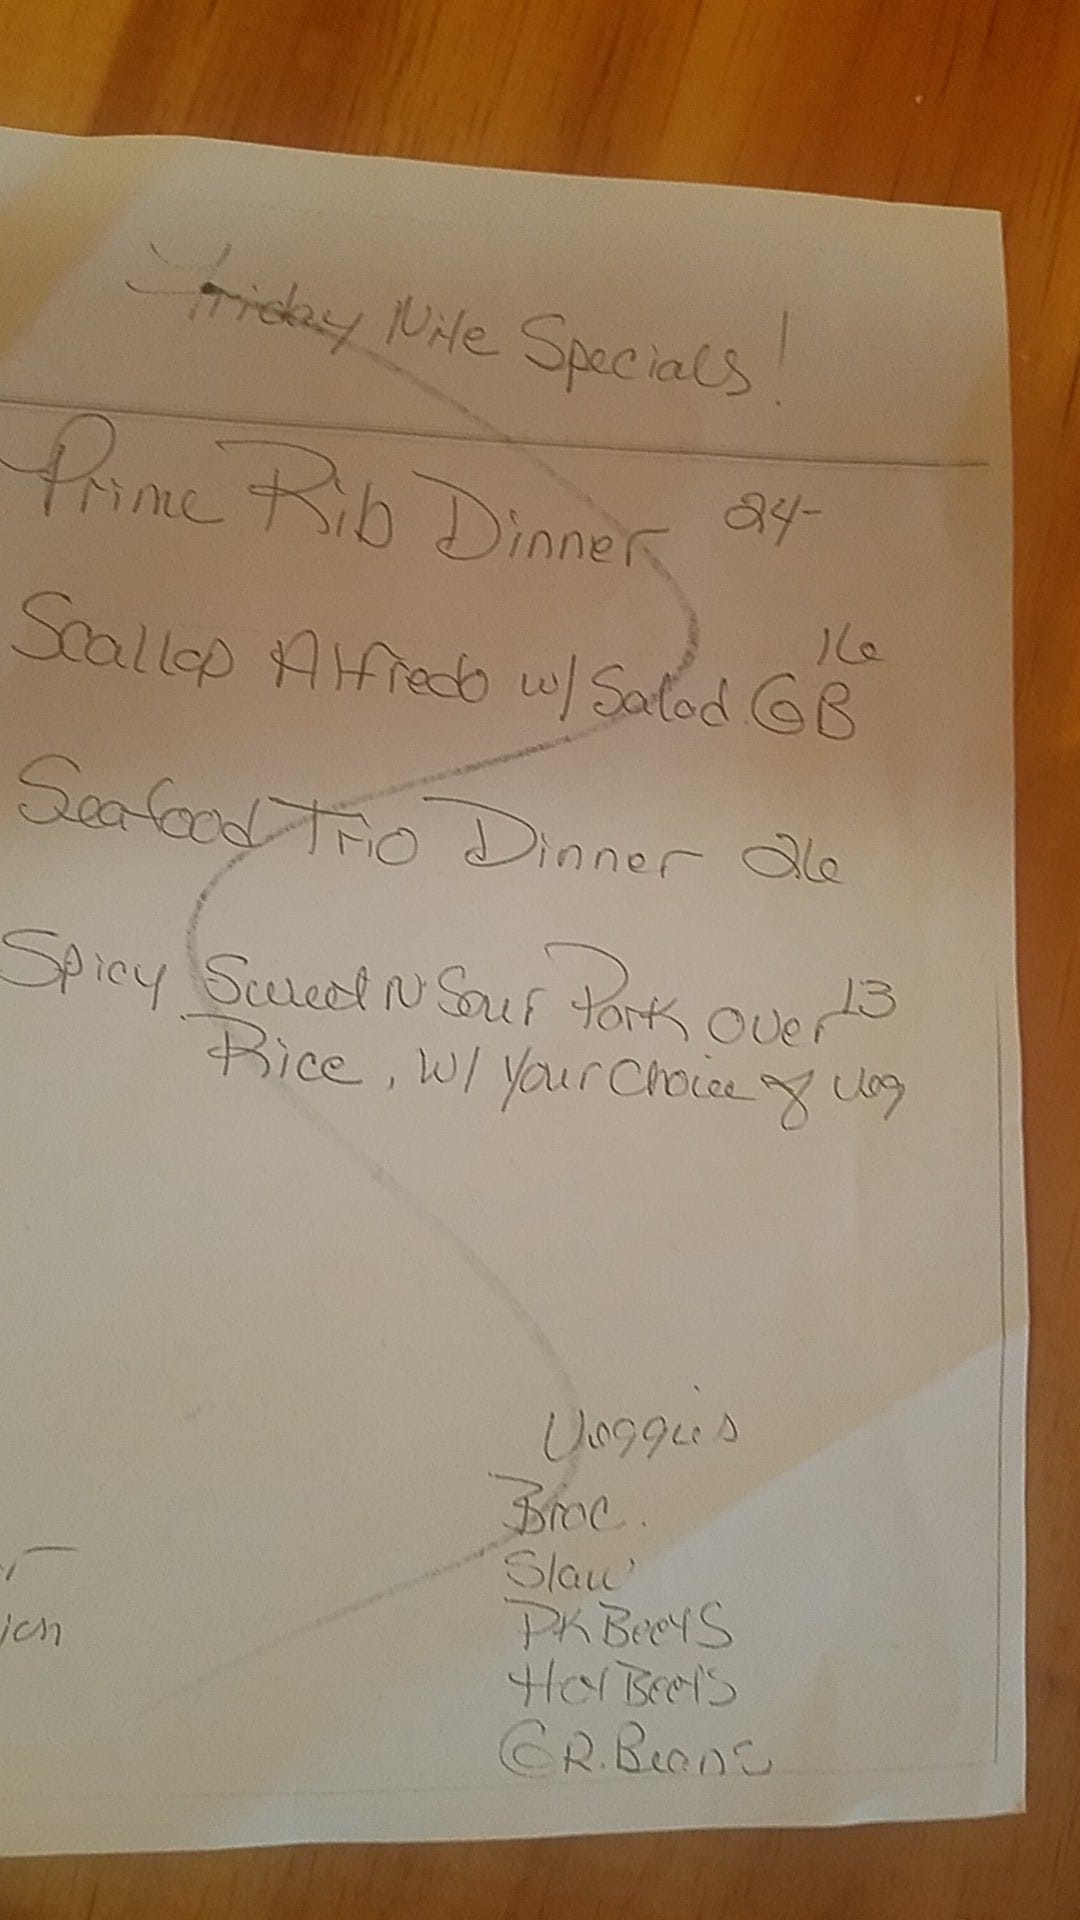 Friday Nite Specials!
Prime Rib Dinner 24-
Scallop Alfredo w/ Salad. GB 16
Seafood Trio Dinner 26
Spicy Sweet N' Sour Pork over 13
Rice, w/ Your Choice of Veg
Veggies
Broc.
Slaw
PK Beets
Hot Beets
GR. Beans